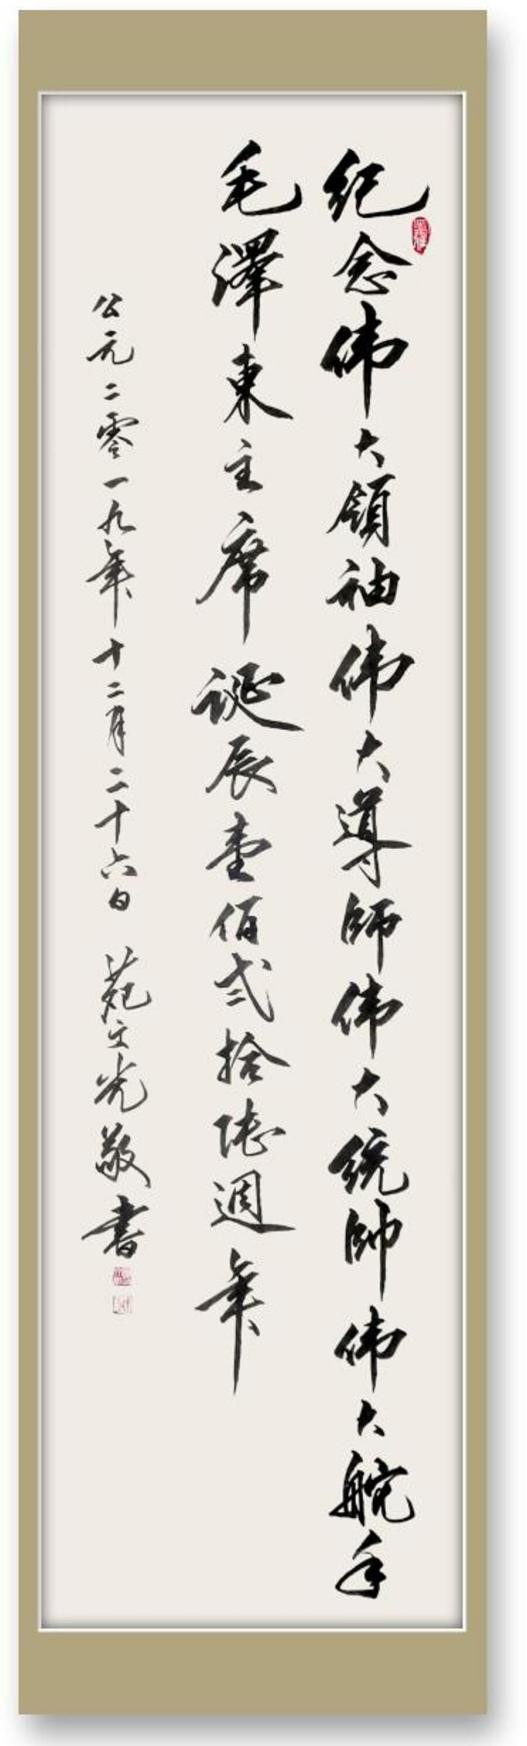 纪念伟大領袖伟大導師伟大统帥伟大舵手
毛澤東主席誕辰壹佰弍拾陸週年
公元二零一九年十二月二十六日 苑文光敬書